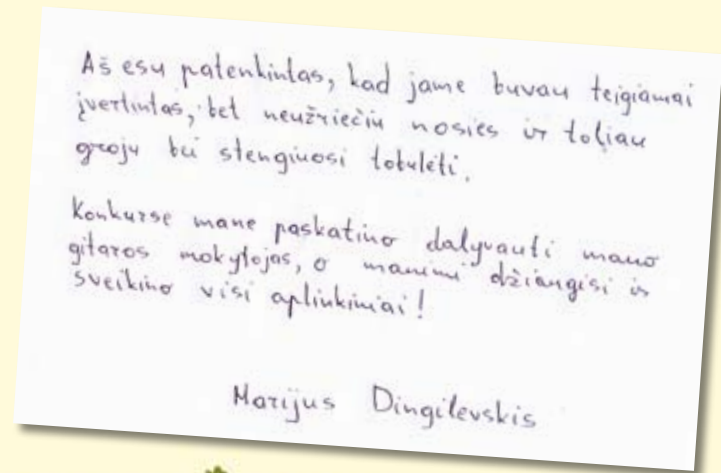 Aš esu patenkintas, kad jame buvau teigiamai
įvertintas, bet neužriečiu nosies ir toliau
groju bei stengiuosi tobulėti.
Konkurse mane paskatino dalyvauti mano
gitaros mokytojas, o manimi džiaugėsi ir
sveikino visi aplinkiniai!
Marijus Dingilevskis